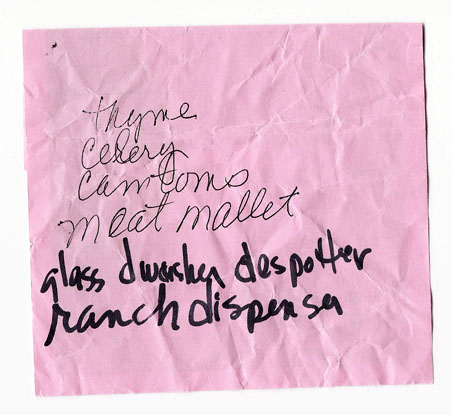 thyme
celery
camtoms
meat mallet
glass dwasher despotter
ranch dispenser